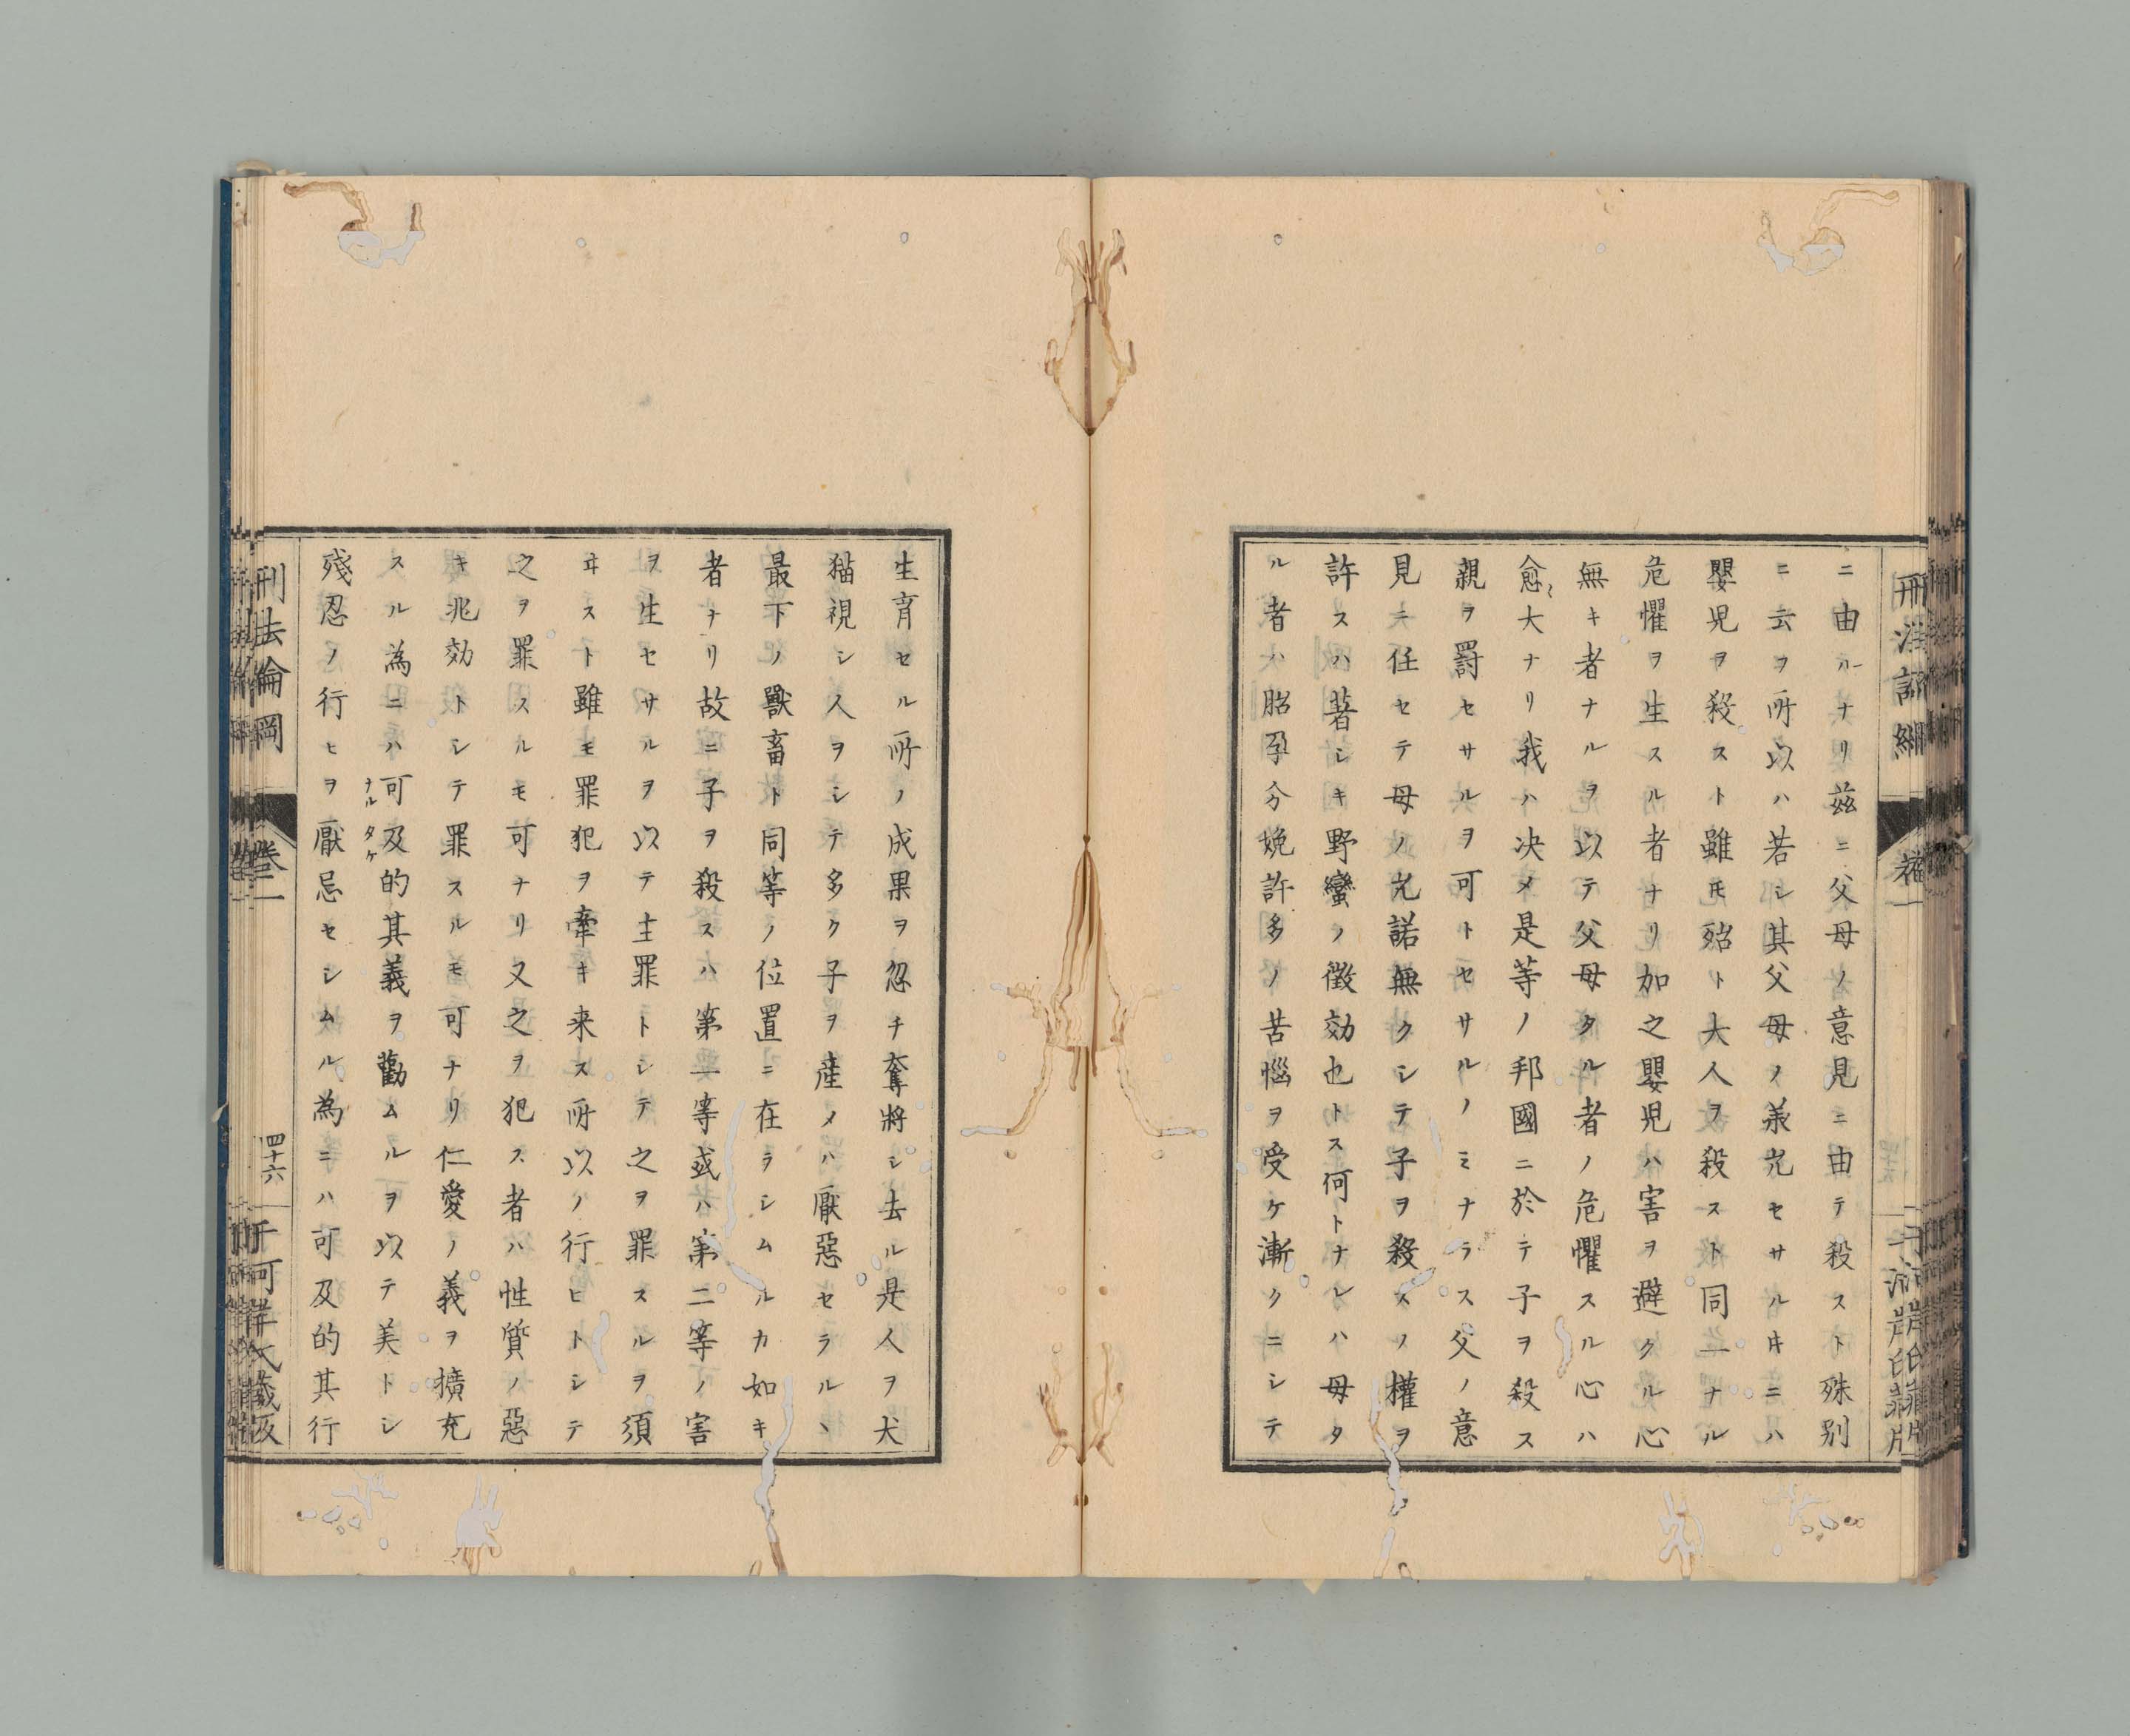 ニ由ルナリ玆ニ父母ノ意見ニ由テ殺スト殊別
ニ云ヲ所以ハ若シ其父母ノ承允セサルキニハ
嬰児ヲ殺スト雖𪜈殆ト大人ヲ殺スト同一ナル
危懼ヲ生スル者ナリ加之嬰児ハ害ヲ避クル心
無キ者ナルヲ以テ父母タル者ノ危懼スル心ハ
愈〻大ナリ我ハ决メ是等ノ邦國ニ於テ子ヲ殺ス
親ヲ罸セサルヲ可トセサルノミナラス父ノ意
見ニ任セテ母ノ允諾無クシテ子ヲ殺スノ權ヲ
許スハ著シキ野蠻ノ徴効也トス何トナレハ母タ
ル者ハ胎孕分娩許多ノ苦惱ヲ受ケ漸クニシテ
生育セル所ノ成果ヲ忽チ奪將シ去ル是人ヲ犬
猫視シ人ヲシテ多ク子ヲ産メハ厭惡セラルヽ
最下ノ獸畜ト同等ノ位置ニ在ラシムルカ如キ
者ナリ故ニ子ヲ殺スハ第一等或ハ第二等ノ害
ヲ生セサルヲ以テ主罪トシテ之ヲ罪スルヲ須
ヰスト雖モ罪犯ヲ牽キ来ス所以ノ行ヒトシテ
之ヲ罪スルモ可ナリ又之ヲ犯ス者ハ性質ノ惡
キ兆効トシテ罪スルモ可ナリ仁愛ノ義ヲ擴充
スル為ニハ可及的其義ヲ勸ムルヲ以テ美トシ
ナルタケ
殘忍ノ行ヒヲ厭忌セシムル為ニハ可及的其行
刑法論綱
卷二
四十六